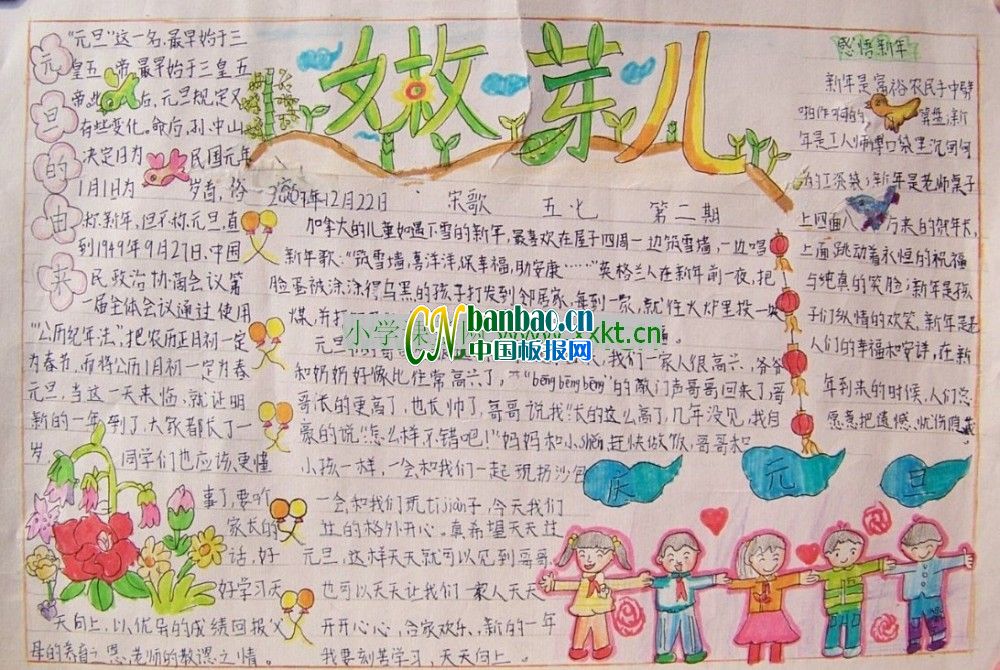 嫩芽儿
2009年12月22日 宋歌 五·七 第二期
元旦的由来
"元旦"这一名,最早始于三
皇五帝,最早始于三皇五
帝,此后,元旦规定又
有些变化。命后,孙中山
决定日为民国元年
1月1日为岁首,俗
称新年,但不称元旦,直
到1949年9月27日,中国
民政治协商会议第
一届全体会议通过使用
"公历纪年法",把农历正月初一定
为春节,而将公历1月初一定为春
元旦,当这一天来临,就证明
新的一年到了,大家都长了一
岁,同学们也应该更懂
事了,要听
家长的
话,好
好学习天
天向上,以优异的成绩回报父
母的养育之恩,老师的教恩之情。
加拿大的儿童如遇下雪的新年,最喜欢在屋子四周一边筑雪墙,一边唱
新年歌:"筑雪墙,喜洋洋,保幸福,助安康……"英格兰人在新年前一夜,把
脸蛋被涂涂得乌黑的孩子打发到邻居家,每到一家,就往火炉里投一块
煤,并打
元旦
我们一家人很高兴,爷爷
和奶奶好像比往常高兴了,"bēng bēng bēng"的敲门声哥哥回来了,哥
哥长的更高了,也长帅了,哥哥说我"长的这么高了,几年没见,我自
豪的说"怎么样不错吧!"妈妈和小shěn赶快做饭,哥哥和
小孩一样,一会和我们一起玩扔沙包
一会和我们玩tijiàn子,今天我们
过的格外开心。真希望天天过
元旦,这样天天就可以见到哥哥,
也可以天天让我们一家人天天
开开心心,合家欢乐、新的一年
我要刻苦学习,天天向上。
感悟新年
新年是富裕农民手中劈
啪作响的算盘;新
年是工人师傅口袋里沉甸甸
的工资袋;新年是老师桌子
上四面八方来的贺年卡,
上面跳动着永恒的祝福
与纯真的笑脸;新年是孩
子们纵情的欢笑,新年是老
人们的幸福和安详,在新
年到来的时候,人们总
愿意把遗憾、忧伤隐藏
庆元旦
CN banbao.cn
中国板报网
小学课
xkt.cn